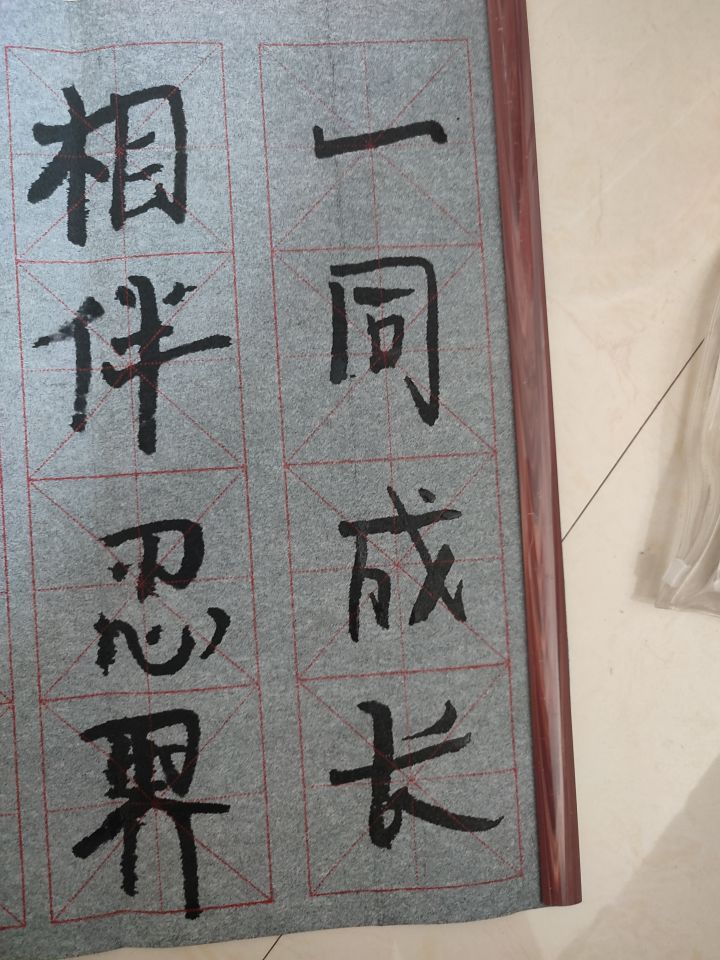 一同成长
相伴忍界